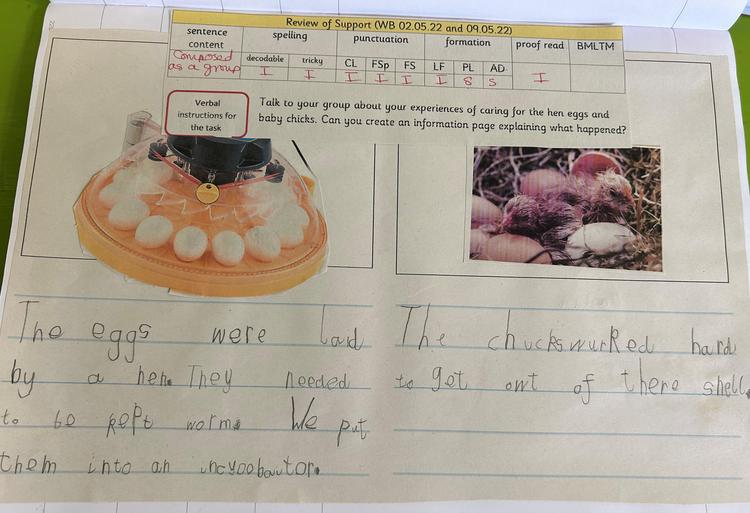 Review of Support (WB 02.05.22 and 09.05.22)
sentence content spelling punctuation formation proof read BMLTM
decodable tricky CL FSp FS LF PL AD
Composed as a group I I I I I I S S I
Verbal instructions for the task
Talk to your group about your experiences of caring for the hen eggs and
baby chicks. Can you create an information page explaining what happened?
The eggs were laid
by a hen. They needed
to be kept worm. We put
them into an incyoobautor.
The chucks wurked hard
to get owt of there shell.